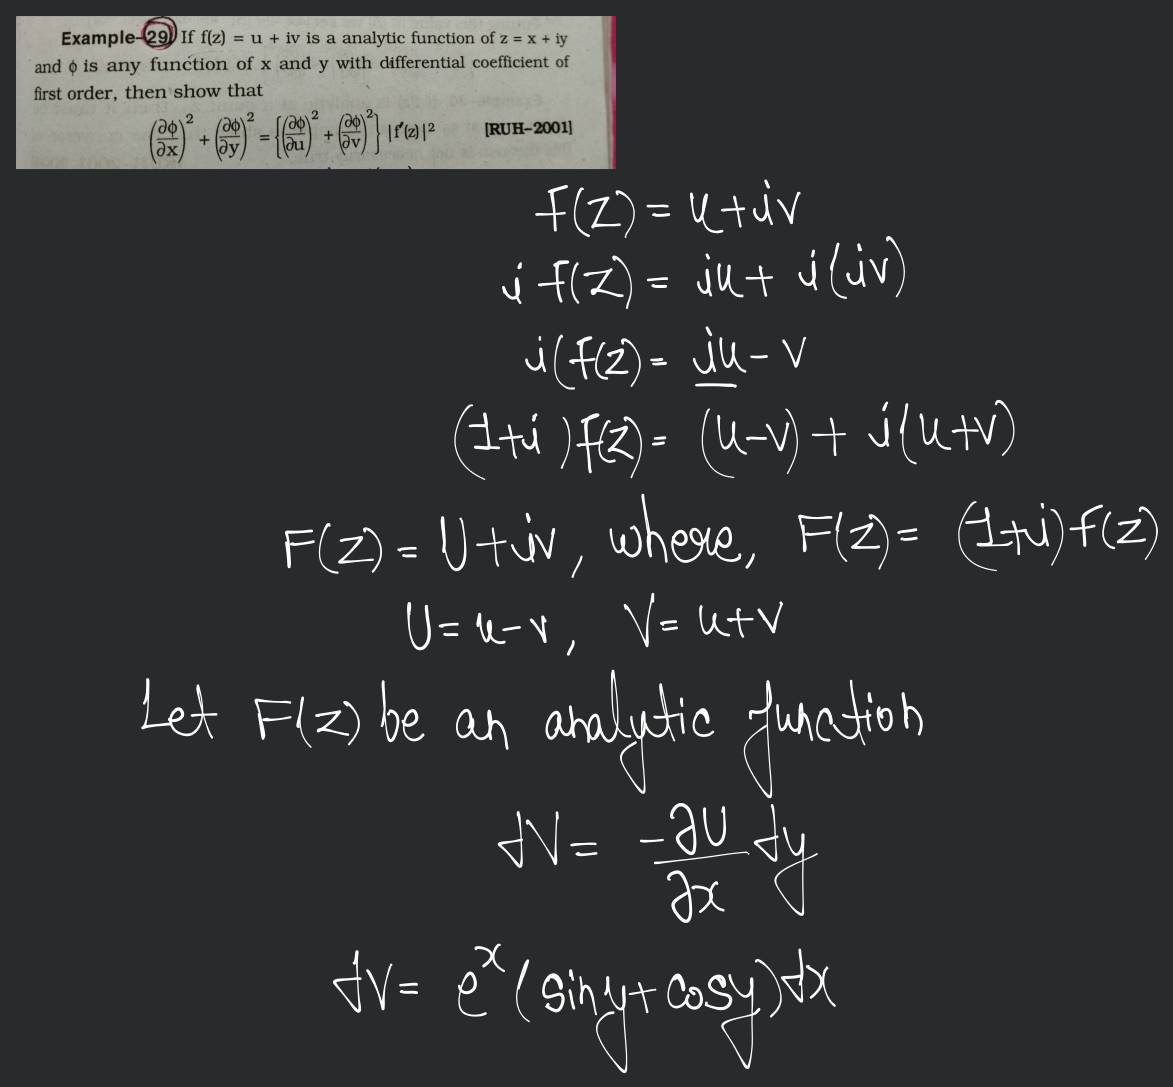 Example-29 If f(z) = u + iv is a analytic function of z = x + iy
and ϕ is any function of x and y with differential coefficient of
first order, then show that
(∂ϕ/∂x)² + (∂ϕ/∂y)² = {(∂ϕ/∂u)² + (∂ϕ/∂v)²} |f'(z)|² [RUH-2001]
f(z) = u+iv
i f(z) = iu + i(iv)
i(f(z) = iu - v
(1+i) f(z) = (u-v) + i(u+v)
F(z) = U+iv, where, F(z) = (1+i) f(z)
U = u-v, V = u+v
Let F(z) be an analytic function
dV = -∂U/∂x dy
dv = eˣ (siny + cosy) dx